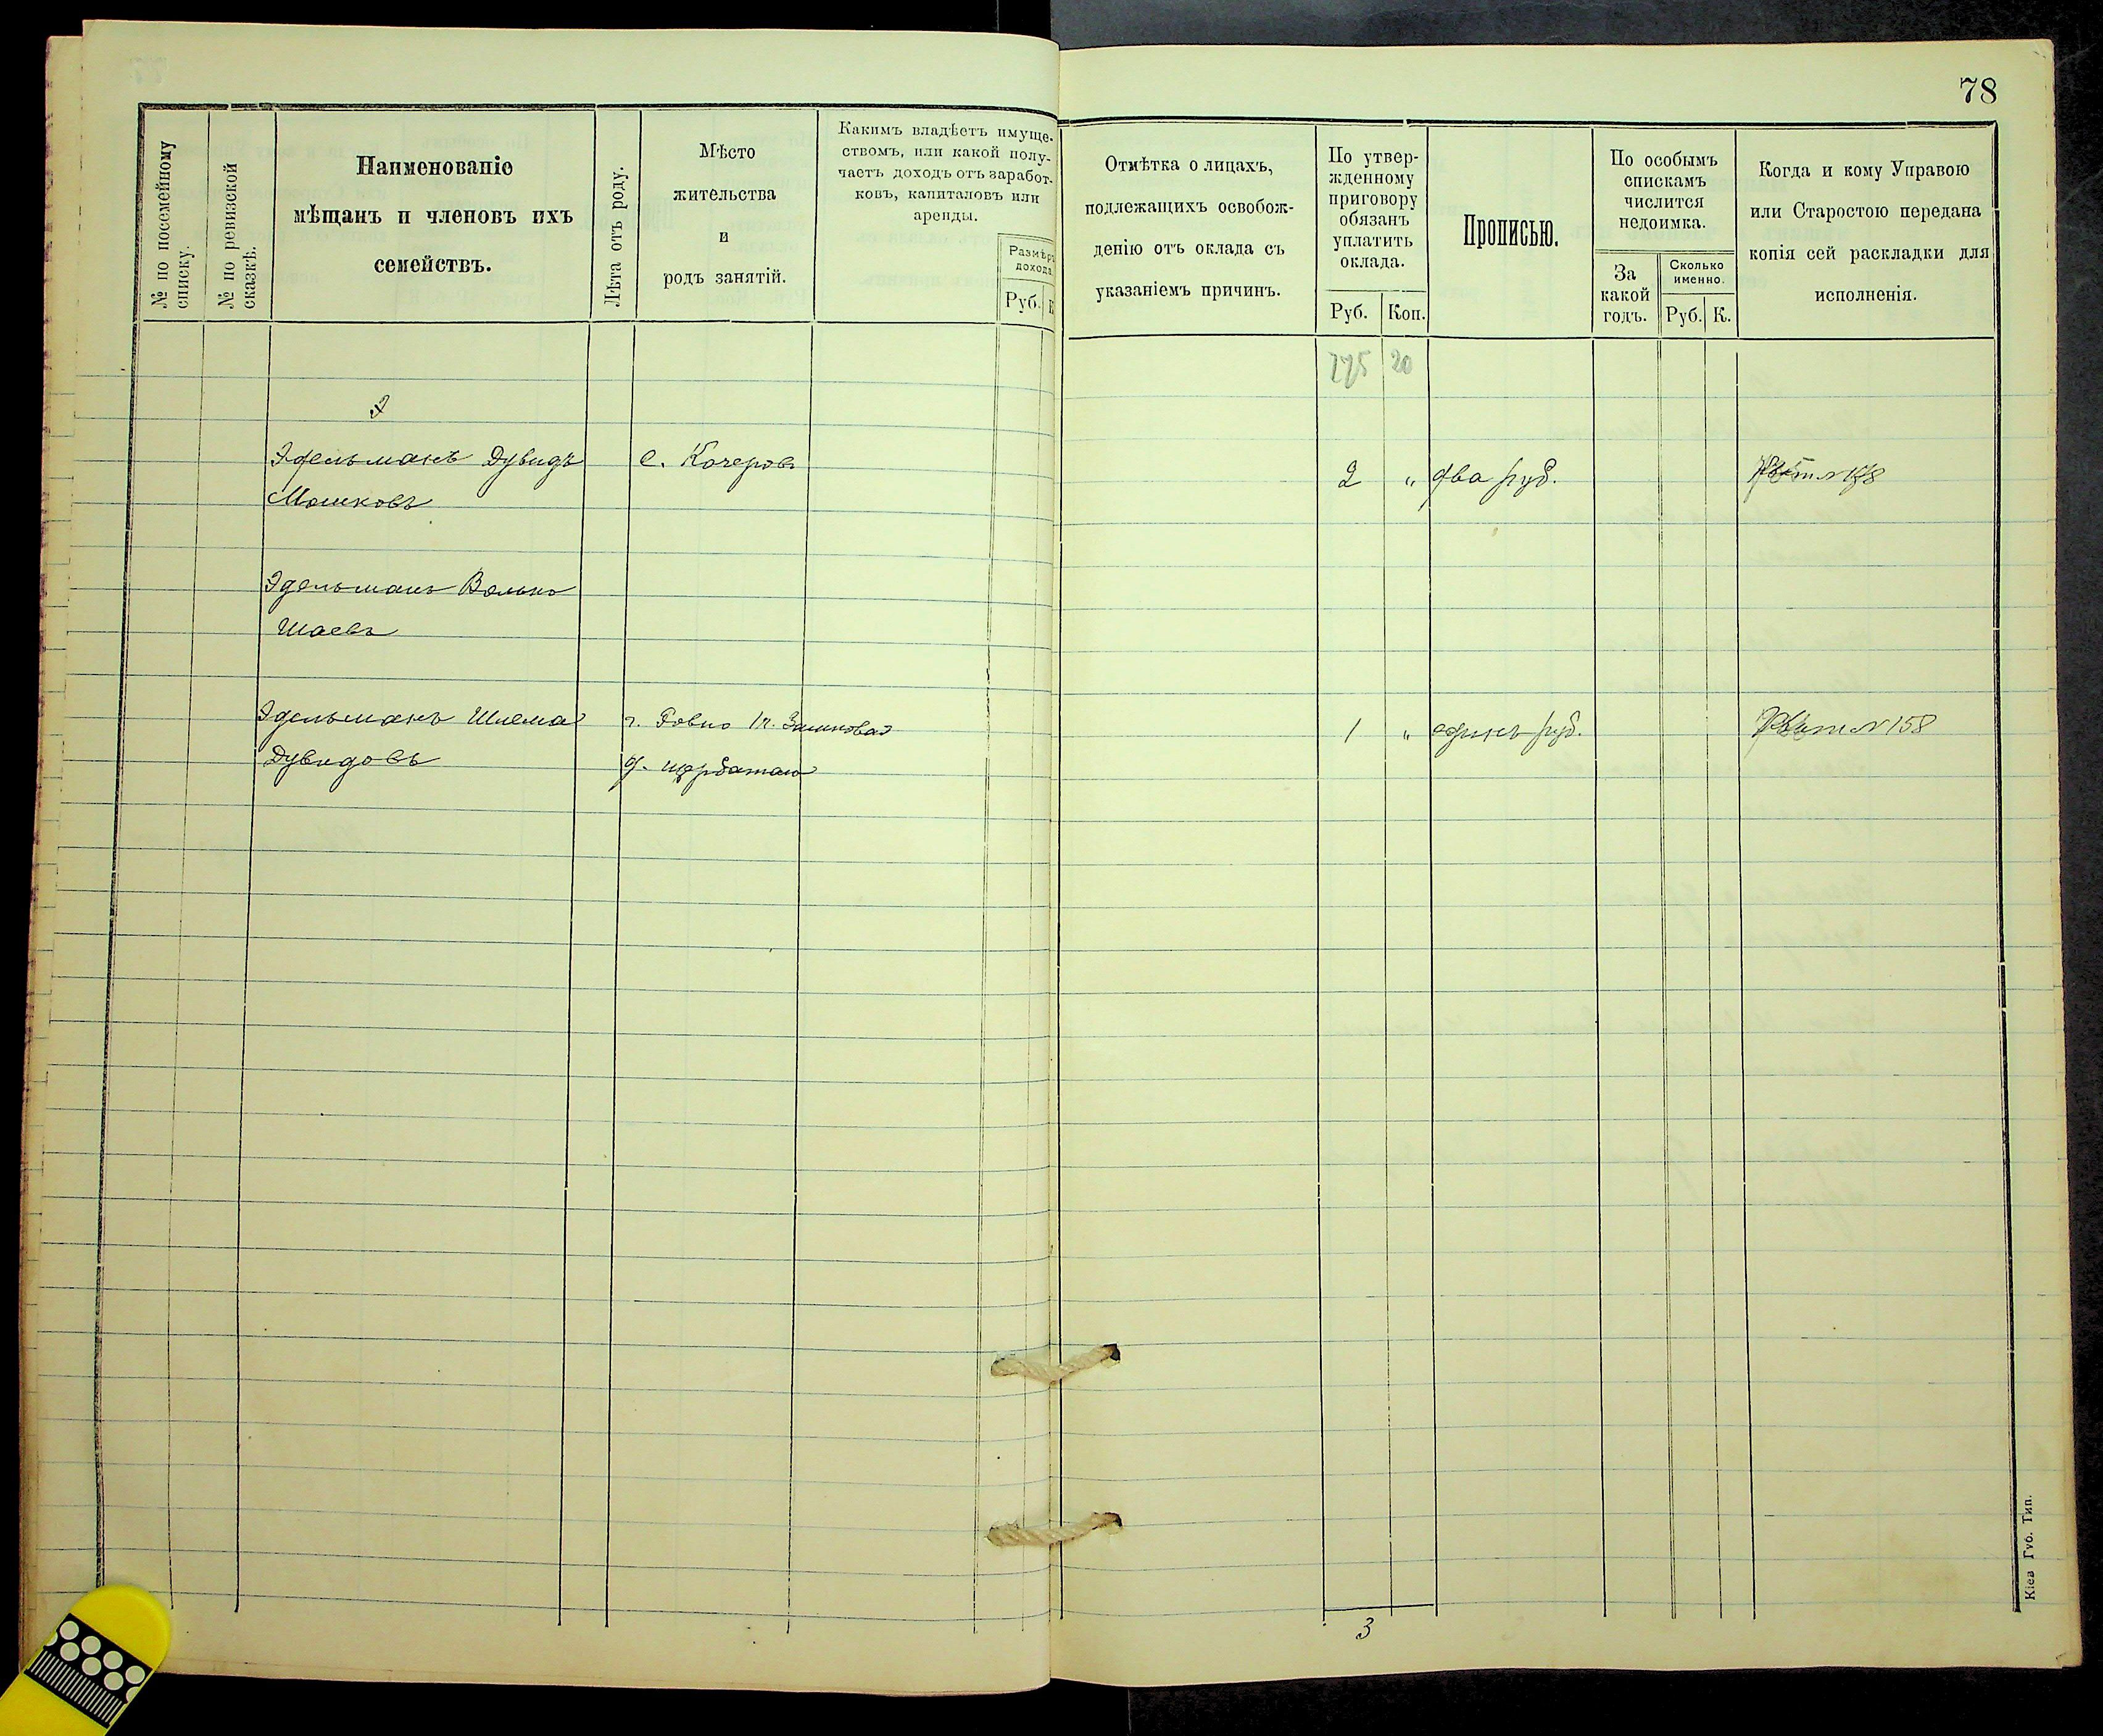 78
№ по посемейному
списку.
№ по ревизской
сказкѣ.
Наименованіе
мѣщанъ и членовъ ихъ
семействъ.
Лѣта отъ роду.
Мѣсто
жительства
и
родъ занятій.
Какимъ владѣетъ имуще-
ствомъ, или какой полу-
чаетъ доходъ отъ заработ-
ковъ, капиталовъ или
аренды.
Размѣръ
дохода
Руб.
Отмѣтка о лицахъ,
подлежащихъ освобож-
денію отъ оклада съ
указаніемъ причинъ.
По утвер-
жденному
приговору
обязанъ
уплатить
оклада.
Руб. Коп.
Прописью.
По особымъ
спискамъ
числится
недоимка.
За
какой
годъ.
Сколько
именно.
Руб. К.
Когда и кому Управою
или Старостою передана
копія сей раскладки для
исполненія.
275 20
Э
Эдельманъ Дувидъ с. Кочеровъ 2 " два руб.
Мошковъ
Эдельманъ Волько
Шаевъ
Эдельманъ Шлема г. Ровно 1 " одинъ руб. № 158
Дувидовъ д.
3
Кіев Губ. Тип.